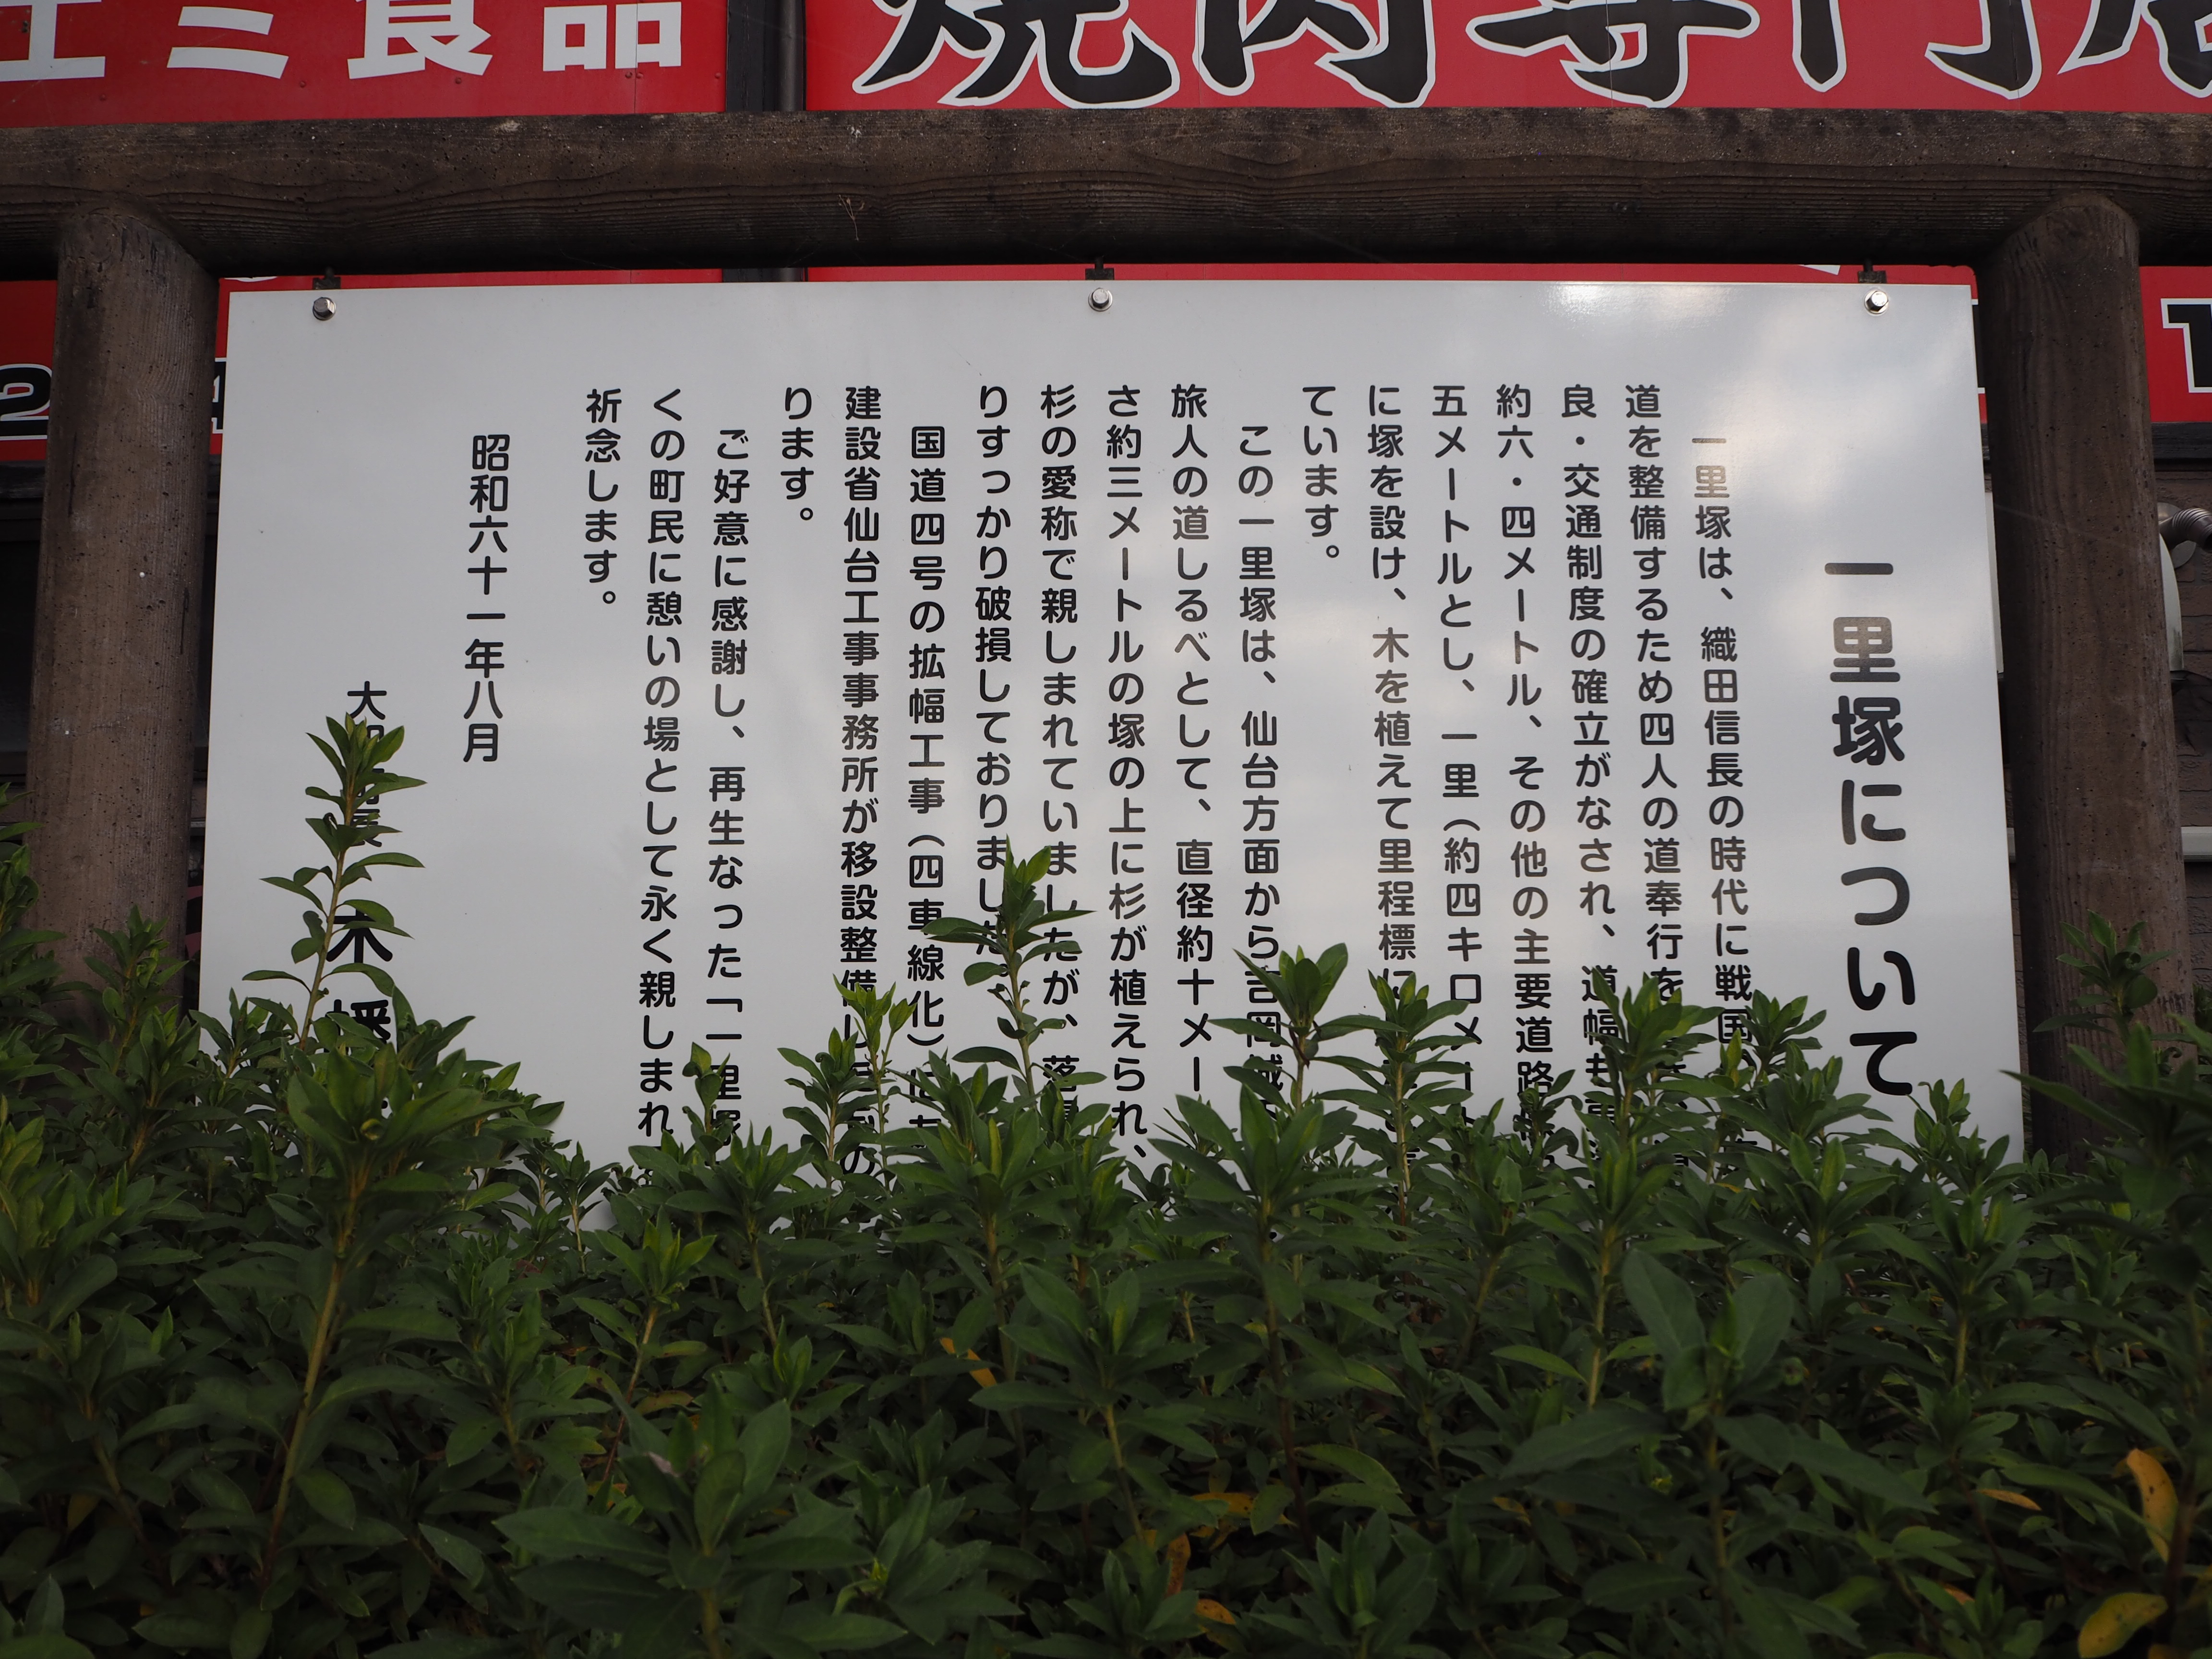 エミ食品
焼肉専門店
一里塚について
一里塚は、織田信長の時代に戦国
道を整備するため四人の道奉行を
良・交通制度の確立がなされ、道幅も
約六・四メートル、その他の主要道路
五メートルとし、一里(約四キロメート
に塚を設け、木を植えて里程標に
ています。
この一里塚は、仙台方面から吉岡城
旅人の道しるべとして、直径約十メー
さ約三メートルの塚の上に杉が植えられ、
杉の愛称で親しまれていましたが、落
りすっかり破損しておりました。
国道四号の拡幅工事(四車線化)に
建設省仙台工事事務所が移設整備し
ります。
ご好意に感謝し、再生なった「一里塚
くの町民に憩いの場として永く親しまれ
祈念します。
昭和六十一年八月
大
長
木